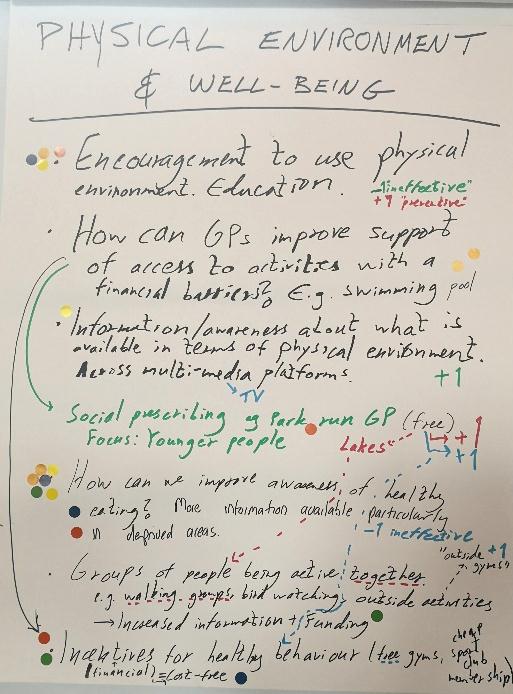 PHYSICAL ENVIRONMENT
& WELL-BEING
• Encouragement to use physical
environment. Education.
-1 ineffective"
+1 "preventive"
• How can GPs improve support
of access to activities with a
financial barriers? E.g. swimming pool
• Information/awareness about what is
available in terms of physical environment.
Across multi-media platforms.
+1
TV
Social prescribing eg Park run GP (free)
Focus: Younger people
Lakes
+1
+1
How can we improve awareness of healthy
eating? More information available, particularly
in deprived areas.
-1 ineffective
"outside +1
gyms"
• Groups of people being active together
e.g. walking groups, bird watching, outside activities
→ Increased information + Funding
• Incentives for healthy behaviour (free gyms, cheap
sport
club
membership)
(financial) = Cost-free